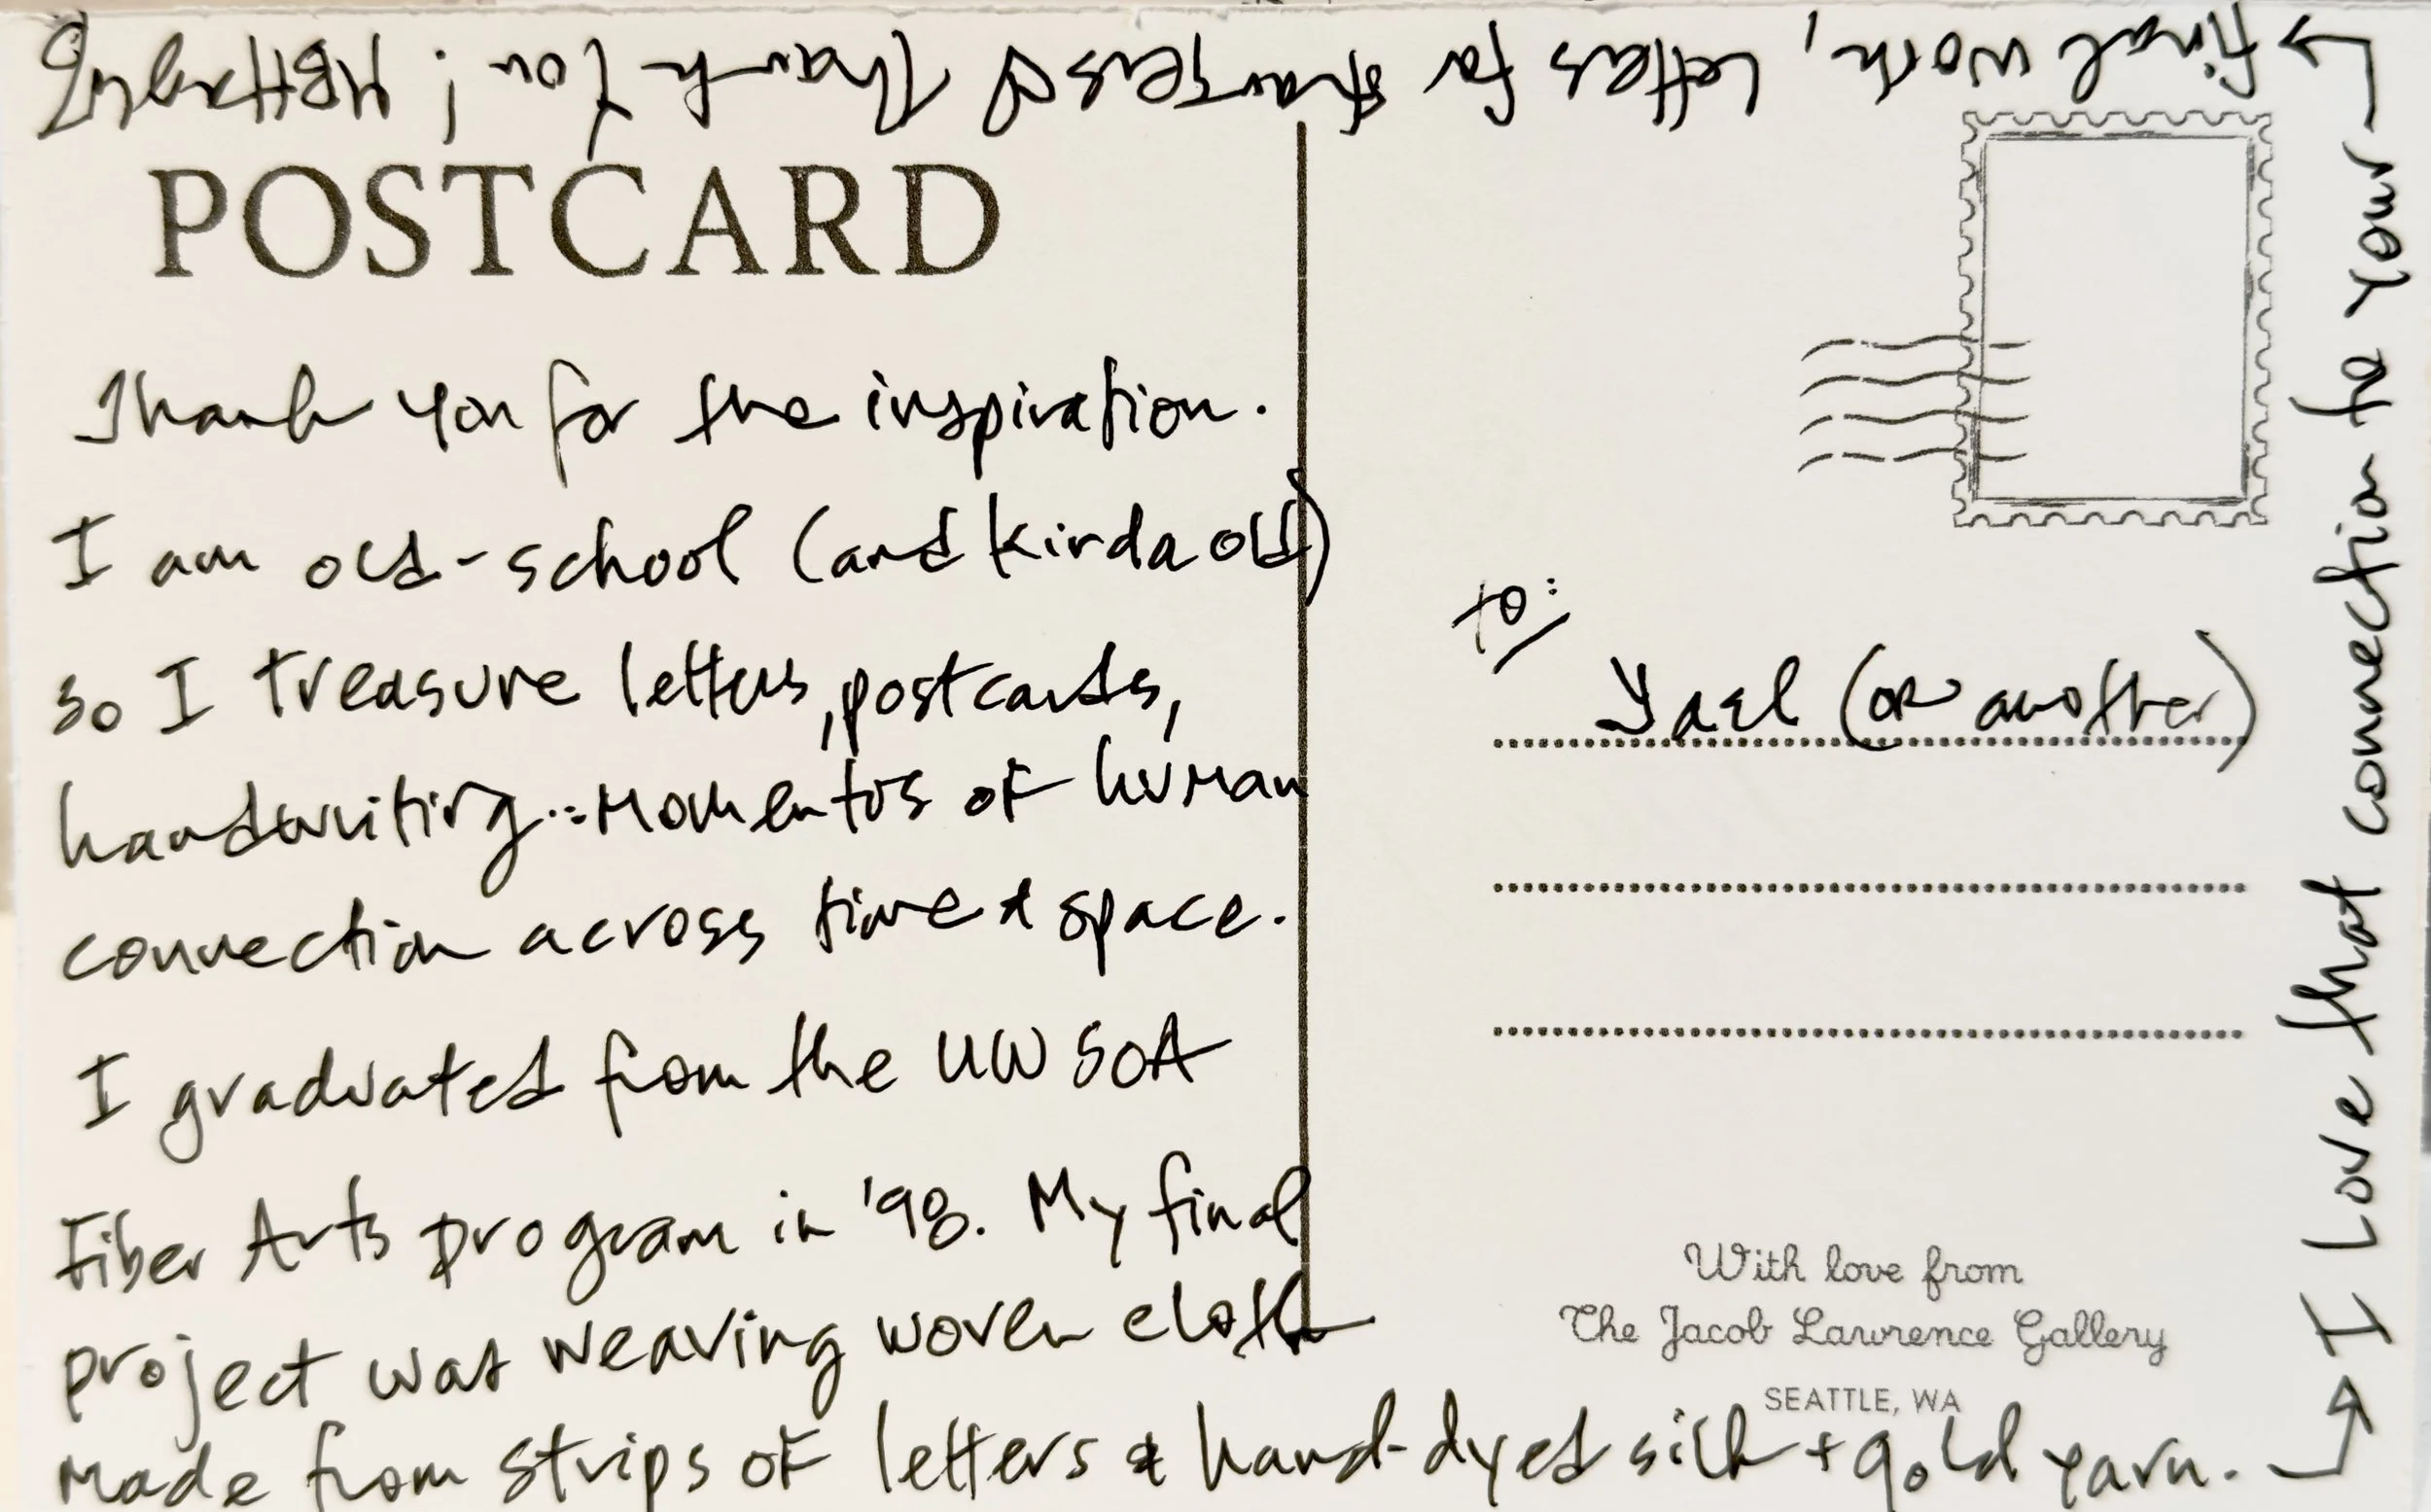 POSTCARD
Thank you for the inspiration.
I am old-school (and kinda old)
so I treasure letters, postcards,
handwriting...momentos of human
connection across time & space.
I graduated from the UW SOA
Fiber Arts program in '98. My final
project was weaving woven cloth
made from strips of letters & hand-dyed silk + gold yarn. →
→ I Love that connection to your →
final work, Letters for strangers ♡ Thank You!
to:
Yael (or another)
With love from
The Jacob Lawrence Gallery
SEATTLE, WA